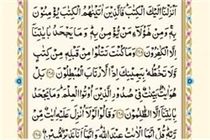 أَنزَلْنَآ إِلَيْكَ ٱلْكِتَٰبَ فَٱلَّذِينَ ءَاتَيْنَٰهُمُ ٱلْكِتَٰبَ يُؤْمِنُونَ
بِهِۦ وَمِنْ هَٰٓؤُلَآءِ مَن يُؤْمِنُ بِهِۦ وَمَا يَجْحَدُ بِـَٔايَٰتِنَآ
إِلَّا ٱلْكَٰفِرُونَ ٤٧ وَمَا كُنتَ تَتْلُوا۟ مِن قَبْلِهِۦ مِن كِتَٰبٍ
وَلَا تَخُطُّهُۥ بِيَمِينِكَ إِذًا لَّٱرْتَابَ ٱلْمُبْطِلُونَ ٤٨
بَلْ هُوَ ءَايَٰتٌۢ بَيِّنَٰتٌ فِى صُدُورِ ٱلَّذِينَ أُوتُوا۟ ٱلْعِلْمَ وَمَا يَجْحَدُ
بِـَٔايَٰتِنَآ إِلَّا ٱلظَّٰلِمُونَ ٤٩ وَقَالُوا۟ لَوْلَآ أُنزِلَ عَلَيْهِ ءَايَٰتٌ مِّن